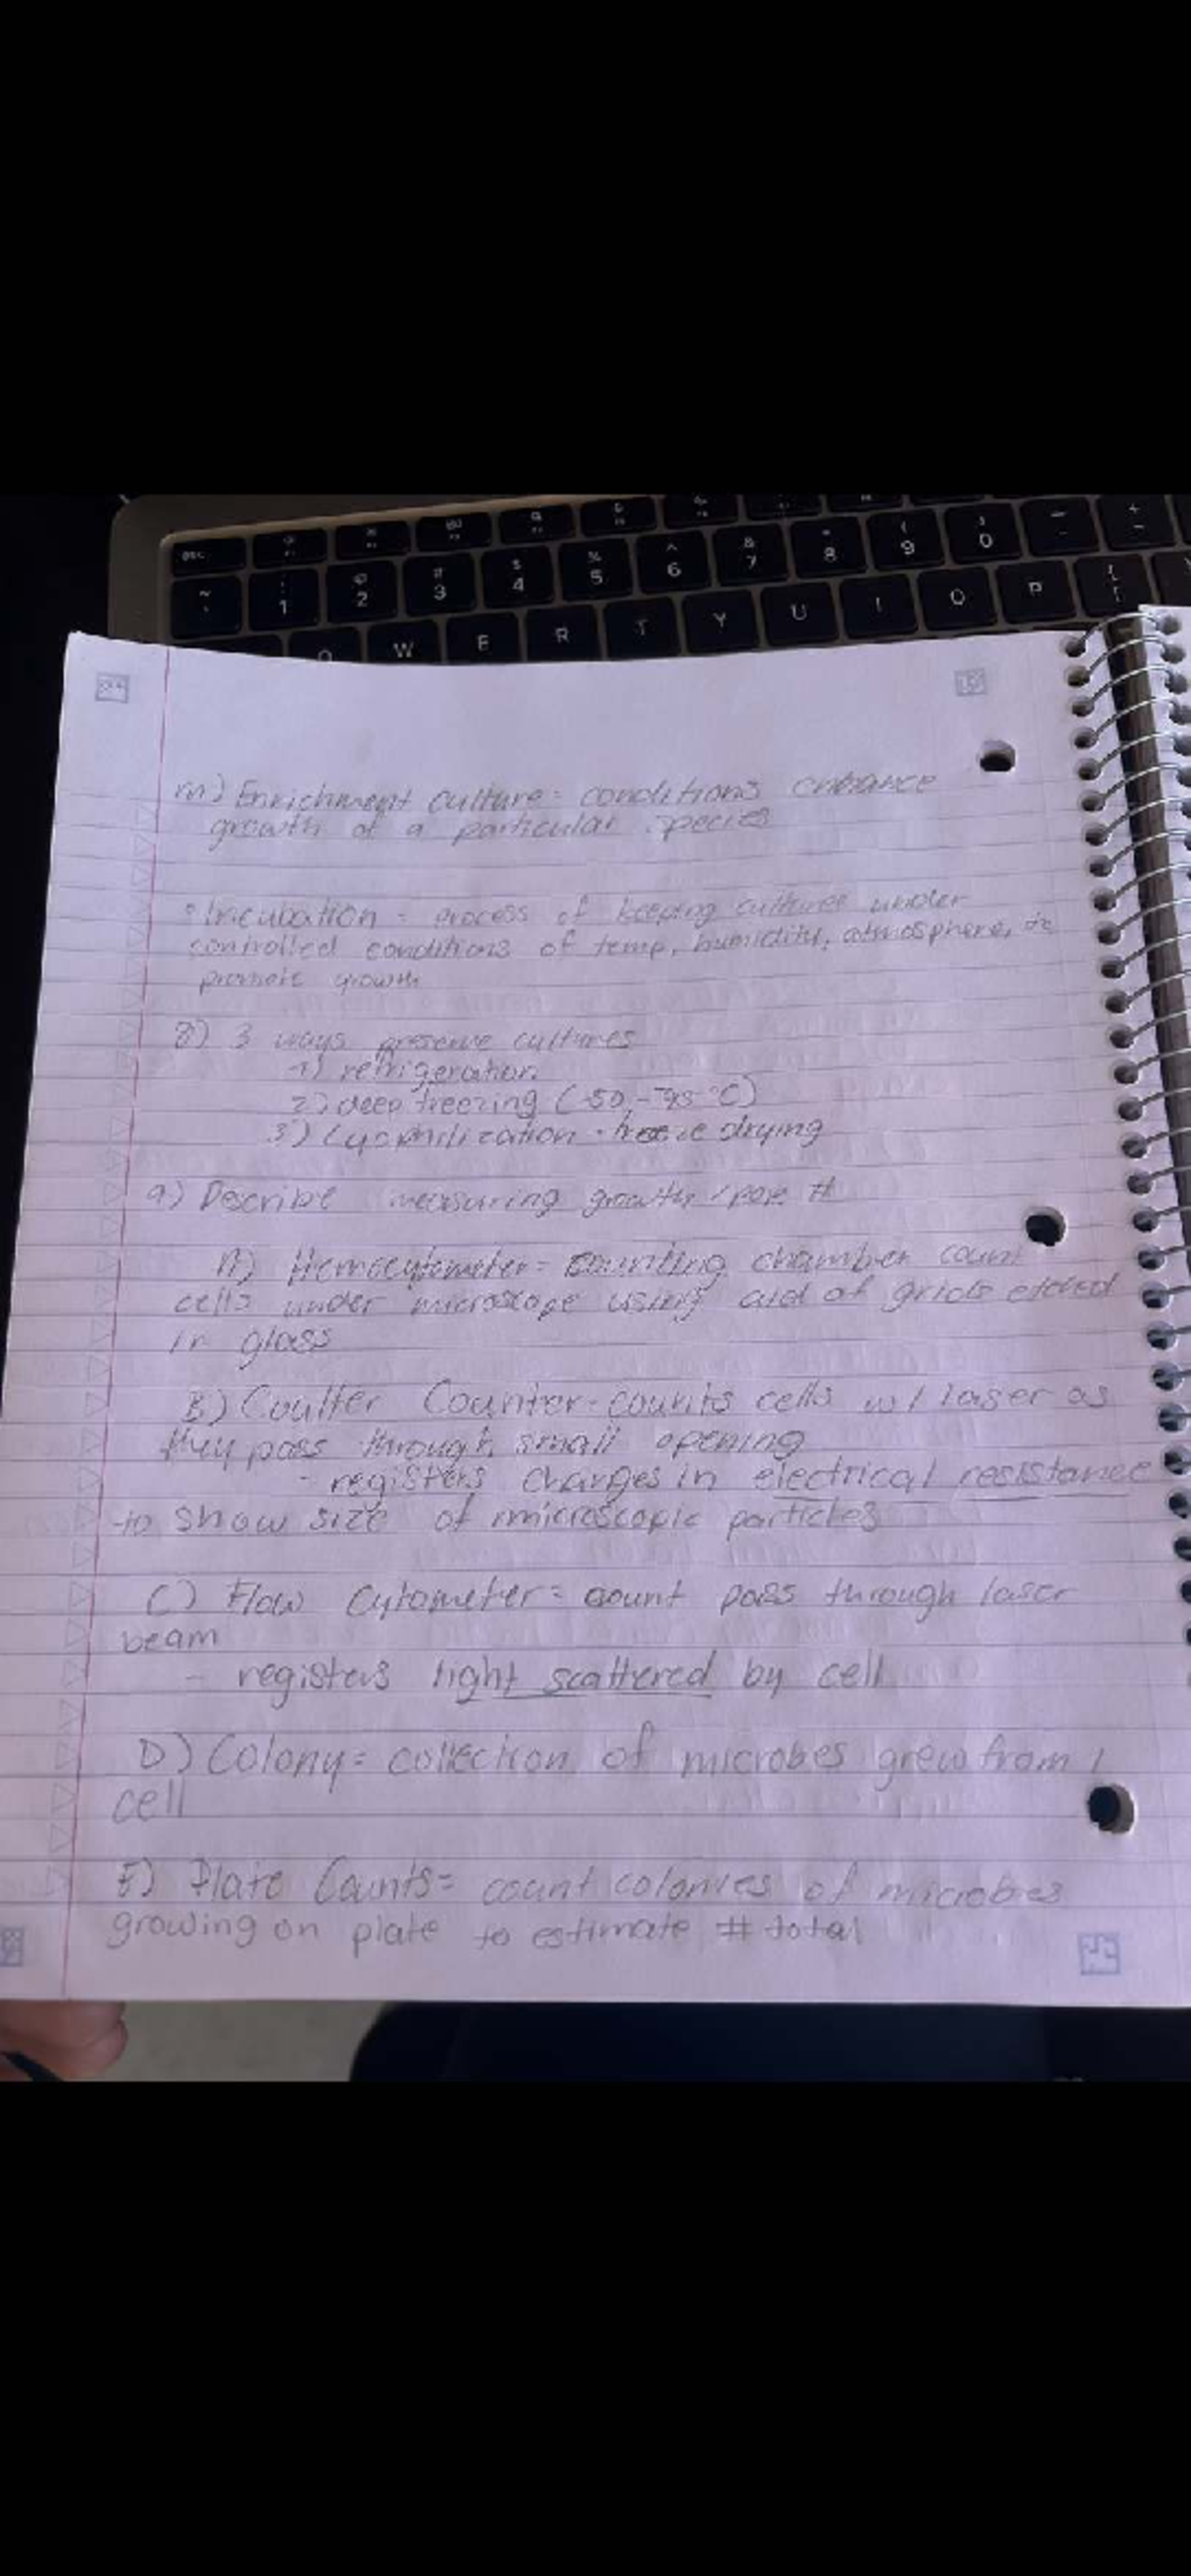 esc
1 2 3 4 5 6 7 8 9 0
W E R T Y U I O P
m) Enrichment culture = conditions enhance
growth of a particular species
• Incubation = process of keeping cultures under
controlled conditions of temp, humidity, atmosphere, to
promote growth
8) 3 ways preserve cultures
1) refrigeration
2) deep freezing (-50, -95 °C)
3) Lyophilization - freeze drying
9) Describe measuring growth / pop #
A) Hemocytometer = counting chamber count
cells under microscope using aid of grids etched
in glass
B) Coulter Counter - counts cells w/ laser as
they pass through small opening
- registers changes in electrical resistance
to show size of microscopic particles
C) Flow Cytometer = count pass through laser
beam
- registers light scattered by cell
D) Colony = collection of microbes grew from 1
cell
E) Plate Counts = count colonies of microbes
growing on plate to estimate # total